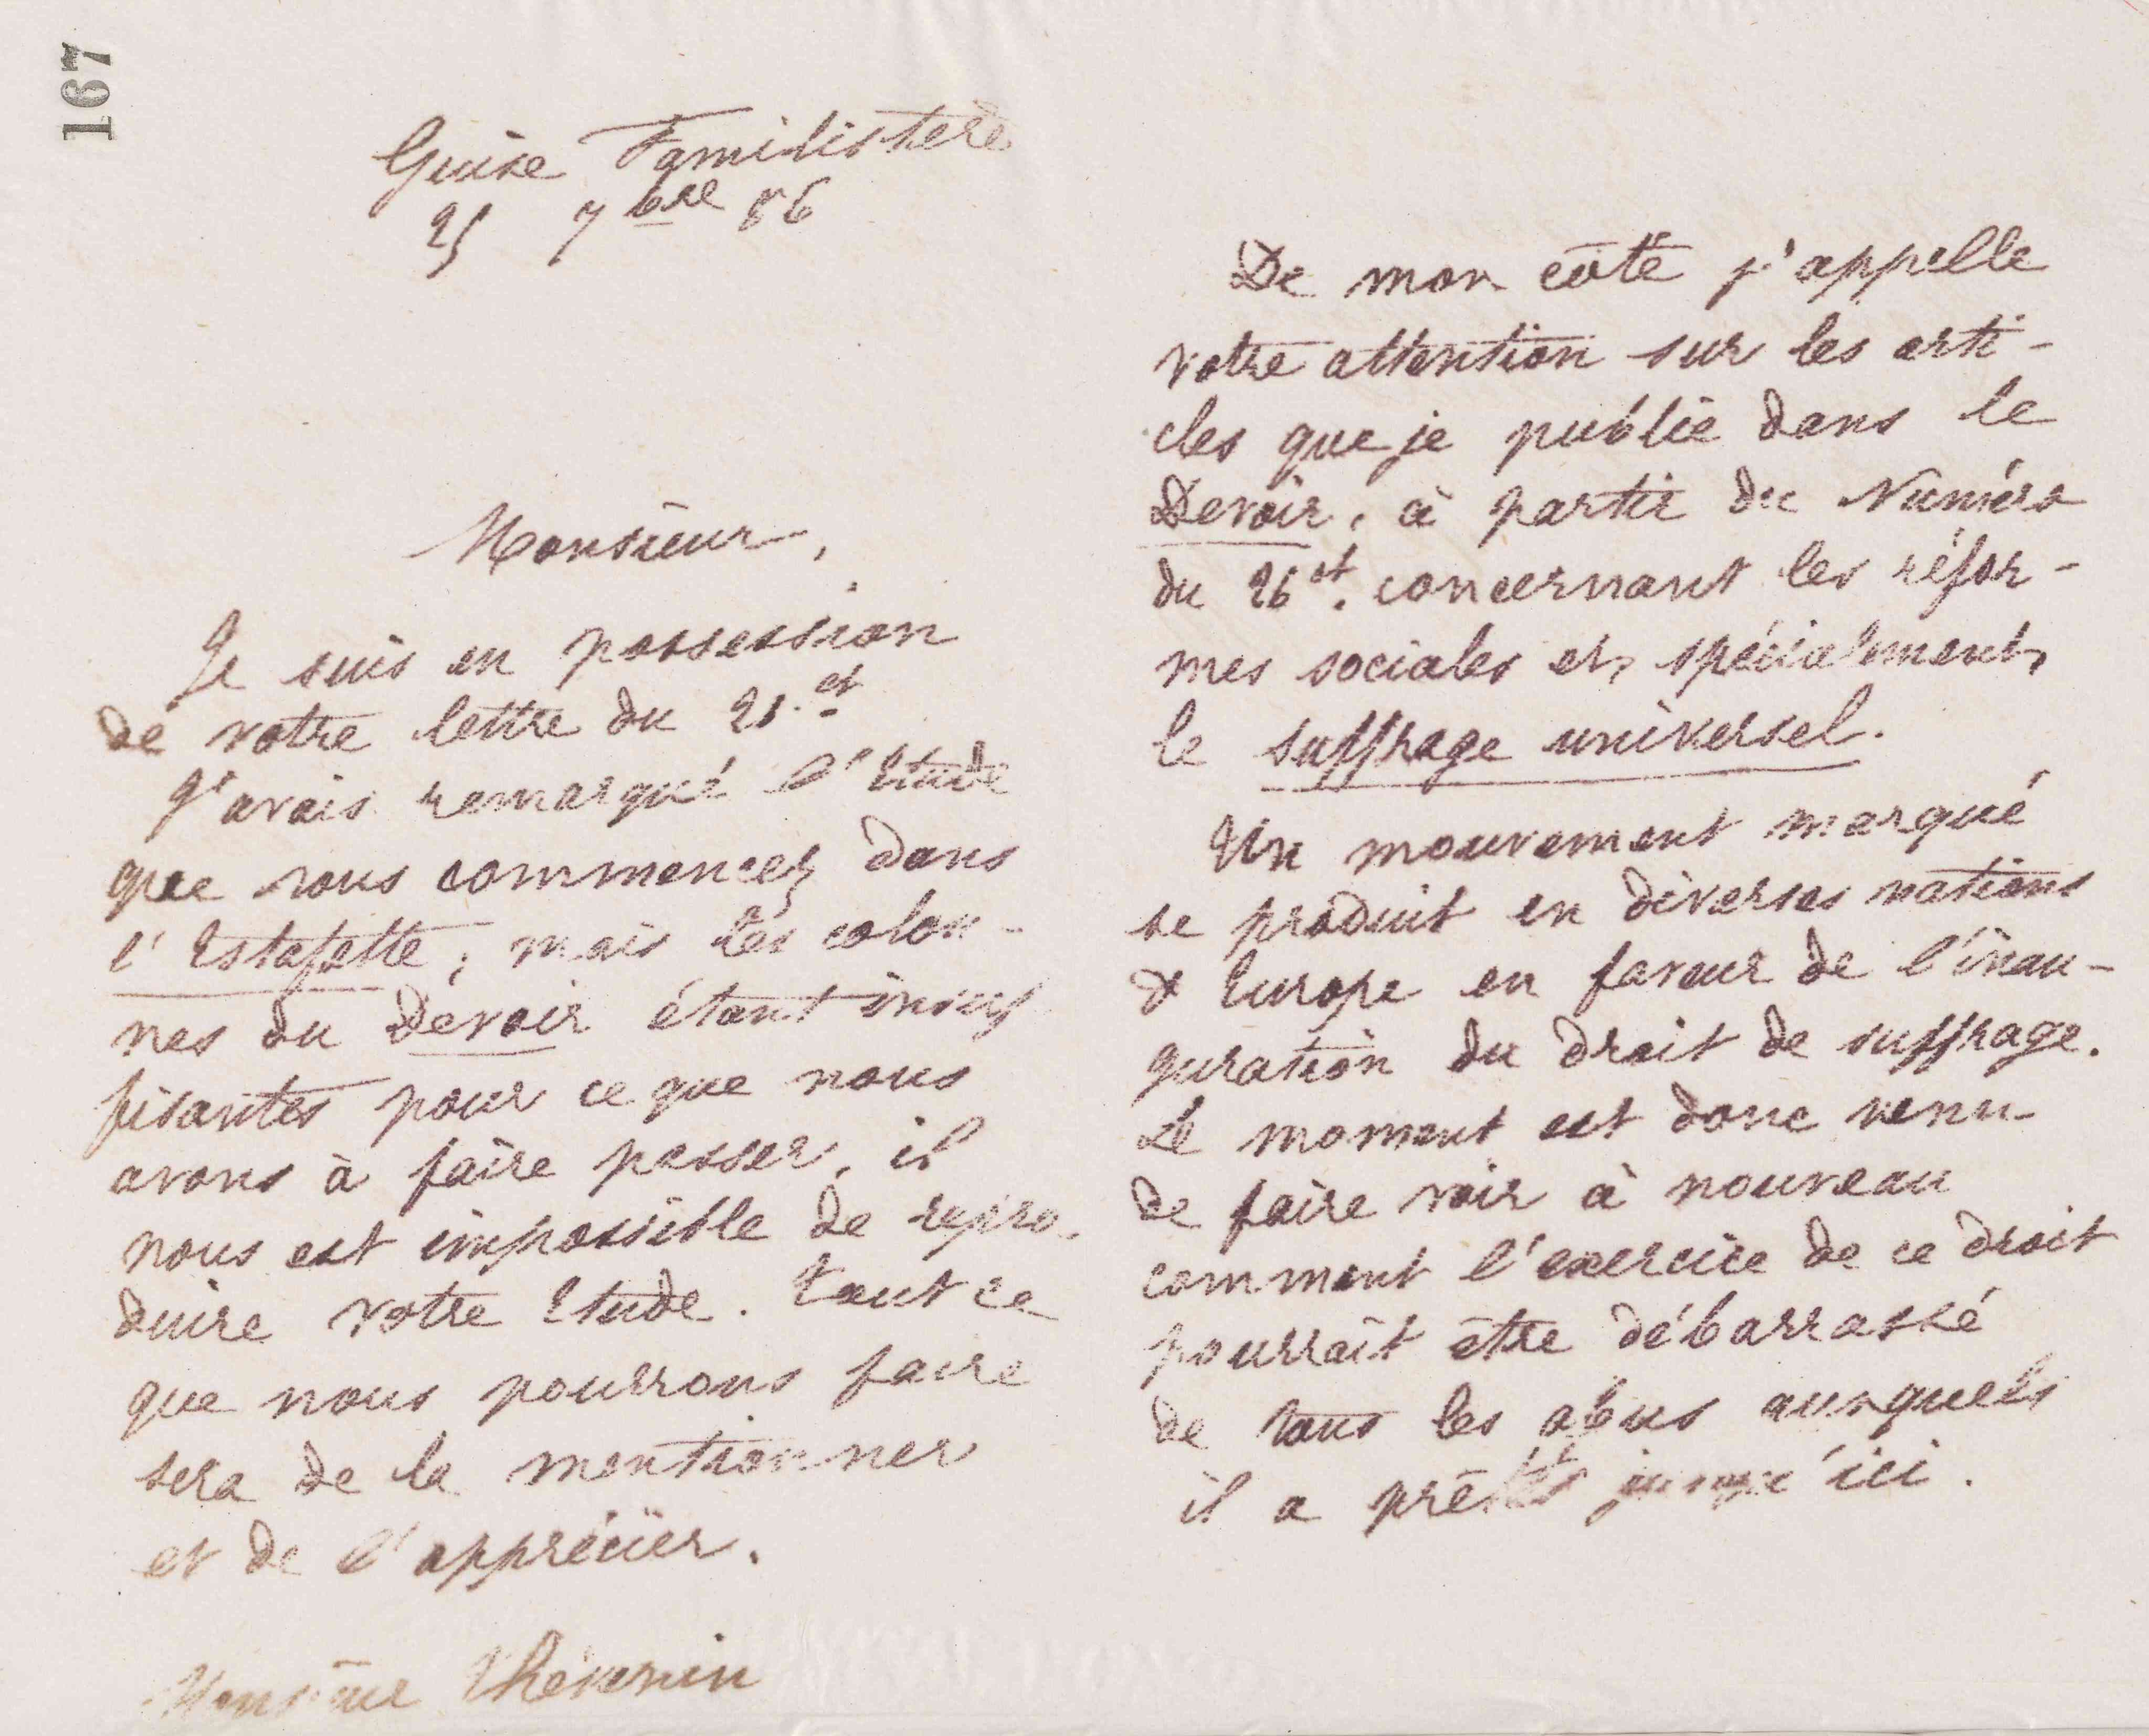 167
Guise Familistere
25 7bre 86
Monsieur,
Je suis en possession
de votre lettre du 21. ct
J'avais remarqué l'Etude
que vous commencez dans
l'Estafette; mais les colon-
nes du Devoir étant insuf
fisantes pour ce que nous
avons à faire passer, il
nous est impossible de repro-
duire votre Etude. Tout ce
que nous pourrons faire
sera de la mentionner
et de l'apprécier.
Monsieur Thévenin
De mon côté j'appelle
votre attention sur les arti-
cles que je publie dans le
Devoir, à partir du Numéro
du 26 ct. concernant les réfor-
mes sociales et, spécialement,
le suffrage universel.
Un mouvement marqué
se produit en diverses nations
d'Europe en faveur de l'inau-
guration du droit de suffrage.
Le moment est donc venu
de faire voir à nouveau
comment l'exercice de ce droit
pourrait être débarrassé
de tous les abus auxquels
il a prêté jusqu'ici.